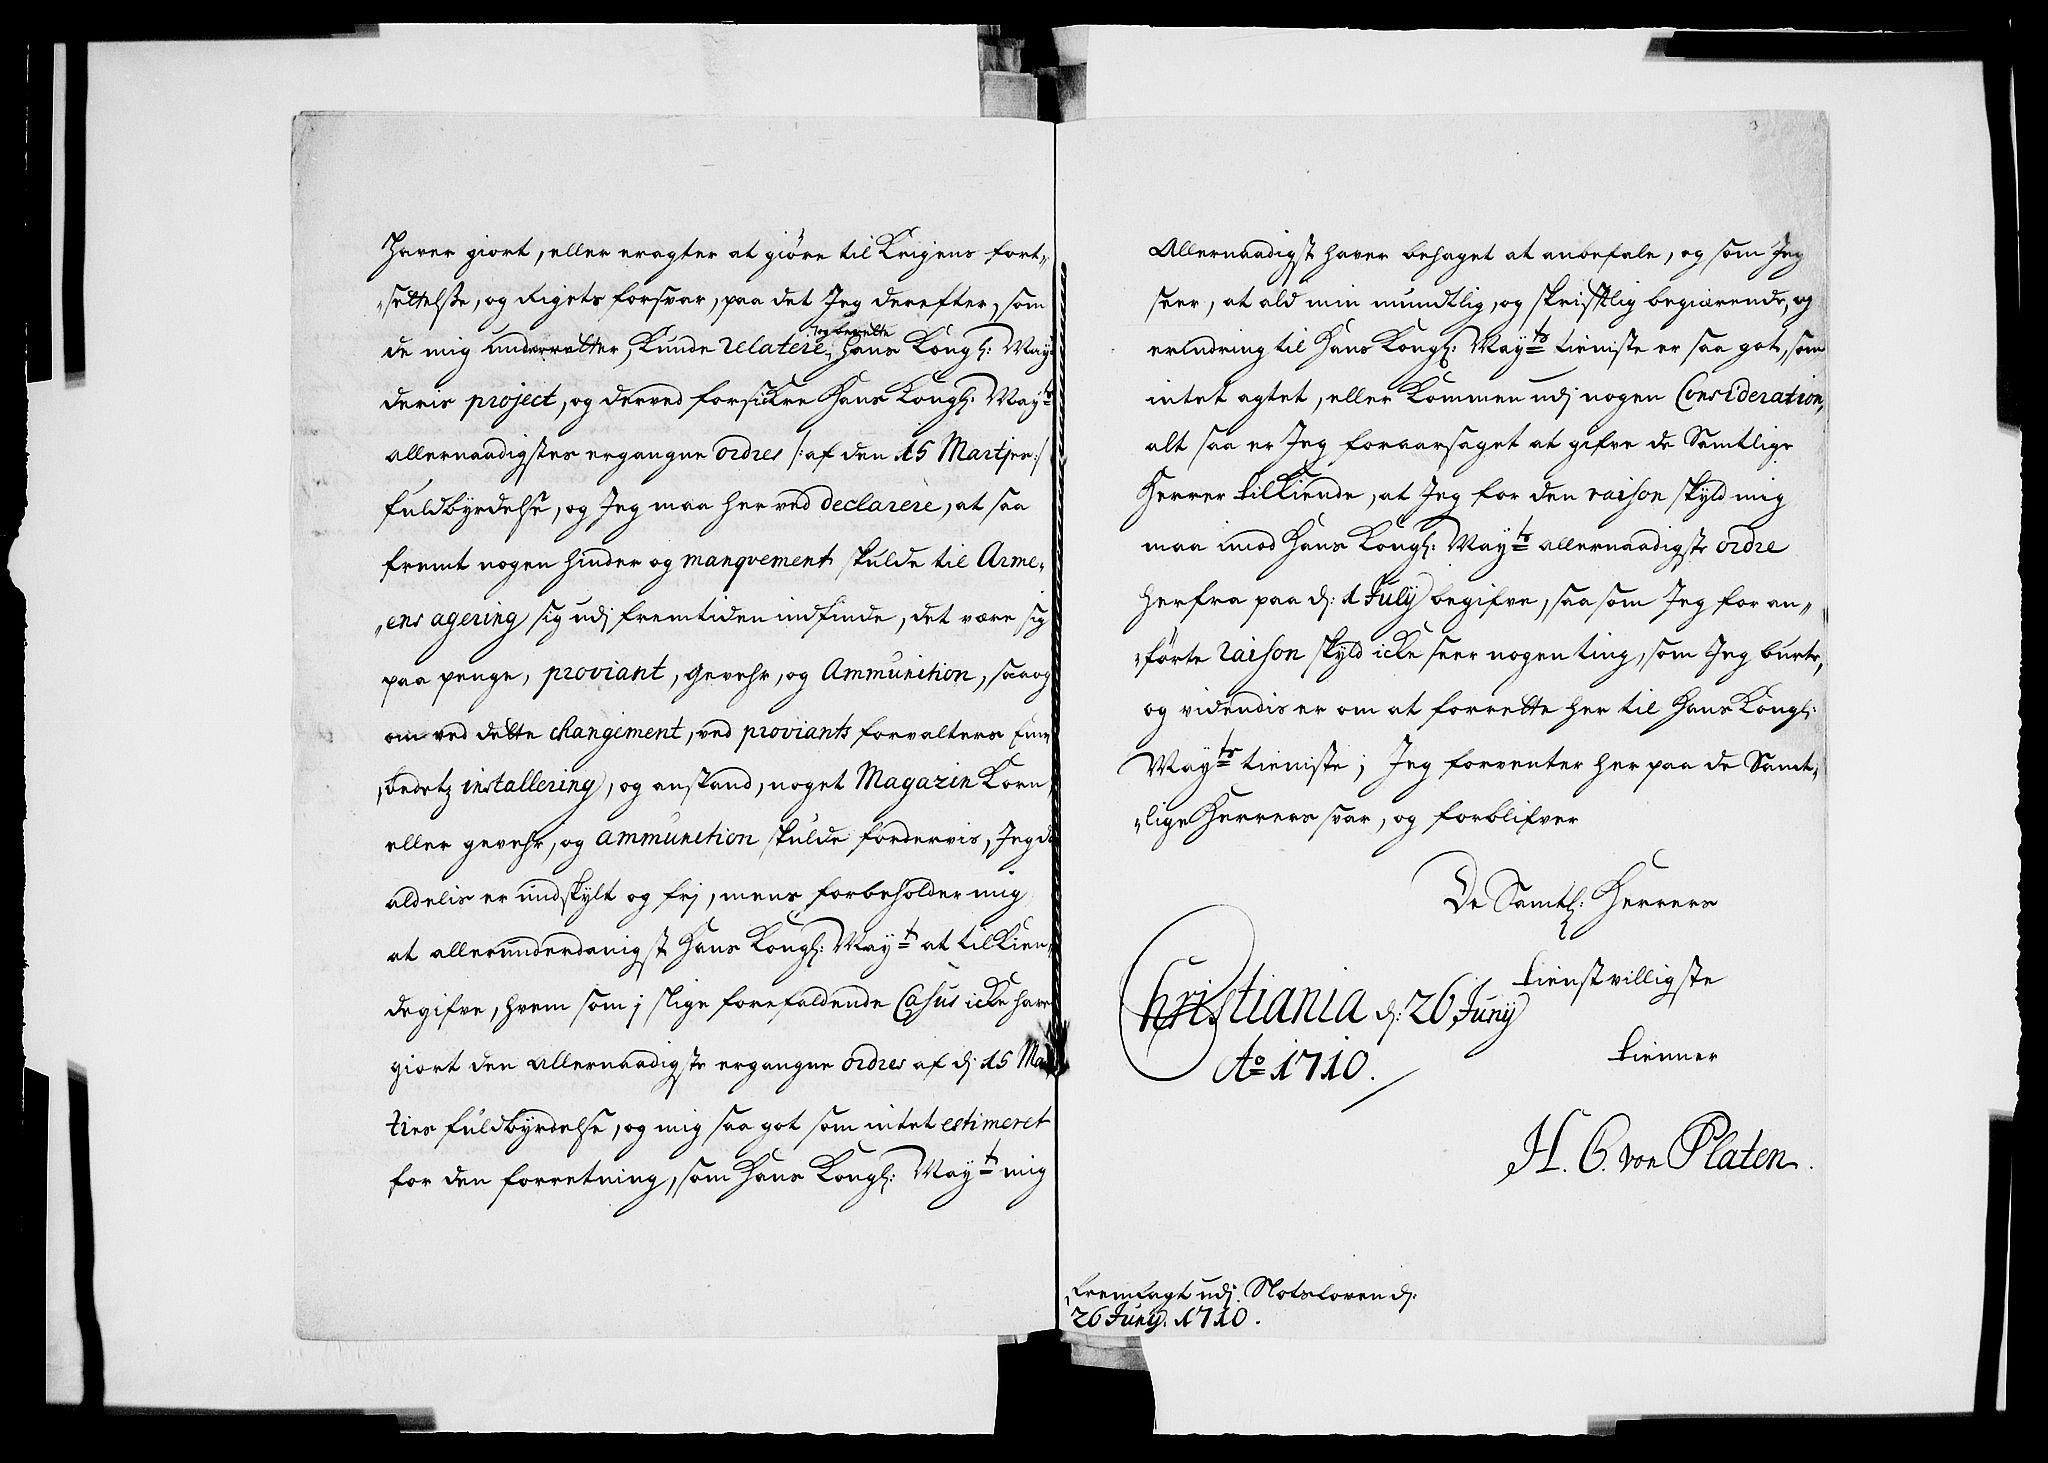 hafver giort, eller eragter at giöre til Krigens fort-
settelsse, og Rigets forsvar, paa det Jeg derefter, som
de mig underretter, Kunde Relatere, Hans Kongl: May
deris project, og derved forsickre Hans Kongl: Mayts
allernaadigstes ergangne ordres /: af den 15 Martjes :/
fuldbyrdelse, og Jeg maa her ved declarere, at saa
fremt nogen hinder og manqvement skulde til Arme-
ens agering sig udj fremtiden indfinde, det være sig
paa penge, proviant, gevehr, og Ammunition, saa og
om ved dette changement, ved proviants forvalters Em-
bedetz installering, og anstand, noget Magazin Korn,
eller gevehr, og ammunition skulde fordervis, Jeg da
aldelis er undskylt og frj, mens forbeholder mig
at allerunderdanigst Hans Kongl: Mayt at tilkien-
degifve, hvem som j slige forefaldende Casus icke hafver
giort den allernaadigste ergangne ordres af d: 15 Mar
ties fuldbyrdelse, og mig saa got som intet estimeret
for den forretning, som Hans Kongl: Mayt mig
Allernaadigst hafver behaget at anbefale, og som Jeg
seer, at ald min mundtlig, og skrifftlig begiærende, og
erindring til Hans Kongl: Mayts tieniste er saa got, som
intet agtet, eller Kommen udj nogen Consideration,
alt saa er Jeg foraarsaget at gifve de Samtlige
Herrer tilkiende, at Jeg for den raison skyld mig
maa imod Hans Kongl: Mayts allernaadigste ordre
herfra paa d: 1 July begifve, saa som Jeg for an-
förte raison skyld icke seer nogen ting, som Jeg burte,
og videndis er om at forrette her til Hans Kongl:
Mayts tieniste; Jeg forventer her paa de Samt-
lige Herrers svar, og forblifver
De Samtl: Herrers
tienstvilligste
Christiania d: 26 Juny
Ao 1710.
tienner
H. C. von Platen.
Fremlagt udj Slotsloven d:
26 Juny. 1710.